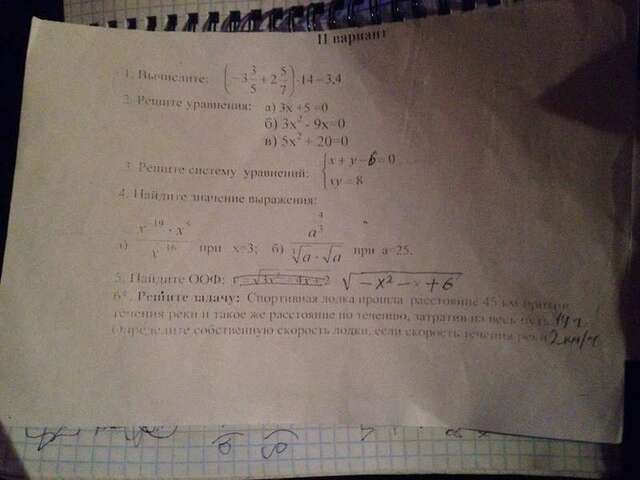 II вариант
1. Вычислите: (-3 3/5 + 2 5/7) · 14 – 3,4
2. Решите уравнения: а) 3x +5 =0
б) 3x² - 9x=0
в) 5x² + 20=0
3. Решите систему уравнений: { x + y – 6 = 0
xy = 8
4. Найдите значение выражения:
при x=3; б) a^(4/3) / при a=25.
5. Найдите ООФ: √-x² - x + 6
6*. Решите задачу: Спортивная лодка прошла расстояние 45 км против
течения реки и такое же расстояние по течению, затратив на весь путь 14 ч.
Определите собственную скорость лодки, если скорость течения реки 2 км/ч